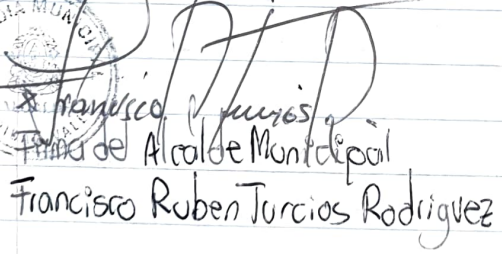 DIA MUNICI
Francisco Turcios
Firma del Alcalde Municipal
Francisco Ruben Turcios Rodriguez